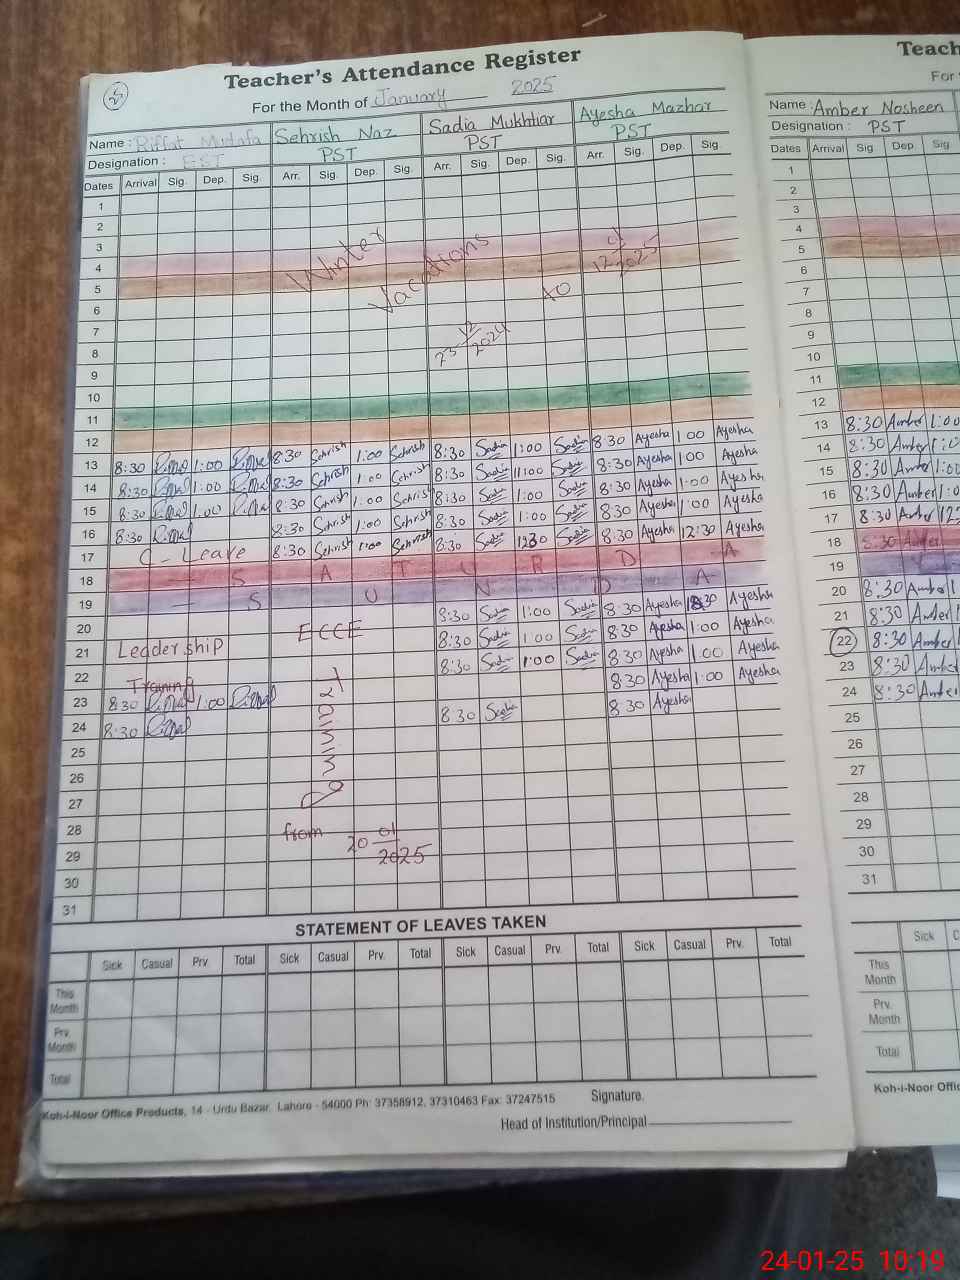 Teacher's Attendance Register
For the Month of January 2025
Name : Riffat Mustafa Sehrish Naz Sadia Mukhtiar Ayesha Mazhar
Designation : EST PST PST PST
Dates Arrival Sig. Dep. Sig. Arr. Sig. Dep. Sig. Arr. Sig. Dep. Sig. Arr. Sig. Dep. Sig.
1
2
3
4
5
6
7
8
9
10
11
12
Winter Vacations
23 12/2024 to 12 01/2025
13 8:30 1:00 8:30 Sehrish 1:00 Sehrish 8:30 Sadia 1:00 Sadia 8:30 Ayesha 1:00 Ayesha
14 8:30 1:00 8:30 Sehrish 1:00 Sehrish 8:30 Sadia 1:00 Sadia 8:30 Ayesha 1:00 Ayesha
15 8:30 1:00 8:30 Sehrish 1:00 Sehrish 8:30 Sadia 1:00 Sadia 8:30 Ayesha 1:00 Ayesha
16 8:30 8:30 Sehrish 1:00 Sehrish 8:30 Sadia 1:00 Sadia 8:30 Ayesha 1:00 Ayesha
17 C-Leave 8:30 Sehrish 1:00 Sehrish 8:30 Sadia 1230 Sadia 8:30 Ayesha 12:30 Ayesha
18 — S A T U R D A
19 — S U N D A
20 8:30 Sadia 1:00 Sadia 8:30 Ayesha Ayesha
21 Leadership ECCE 8:30 Sadia 1:00 Sadia 8:30 Ayesha 1:00 Ayesha
22 Training 8:30 Sadia 1:00 Sadia 8:30 Ayesha 1:00 Ayesha
23 8:30 1:00 8:30 Ayesha 1:00 Ayesha
24 8:30 8 30 Sadia 8:30 Ayesha
25
26
27
28
29
30
31
Training
from 20 01/2025
STATEMENT OF LEAVES TAKEN
Sick Casual Prv. Total Sick Casual Prv. Total Sick Casual Prv. Total Sick Casual Prv. Total
This Month
Prv. Month
Total
Koh-i-Noor Office Products, 14 - Urdu Bazar, Lahore - 54000 Ph: 37358912, 37310463 Fax: 37247515
Signature.
Head of Institution/Principal
Teach
For
Name : Amber Nosheen
Designation : PST
Dates Arrival Sig Dep. Sig
1
2
3
4
5
6
7
8
9
10
11
12
13 8:30 Amber 1:00
14 8:30 Amber 1:0
15 8:30 Amber 1:00
16 8:30 Amber 1:0
17 8:30 Amber 12
18 8:30 Amber
19
20 8:30 Amber 1:0
21 8:30 Amber 1:0
22 8:30 Amber 1:
23 8:30 Amber
24 8:30 Amber
25
26
27
28
29
30
31
Sick C
This Month
Prv. Month
Total
Koh-i-Noor Offic
24-01-25 10:19